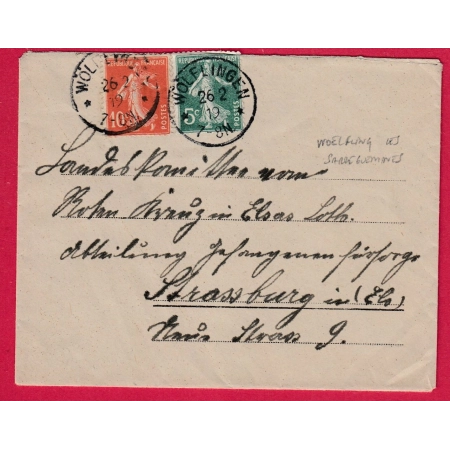 RÉPUBLIQUE FRANÇAISE
10c POSTES
5c POSTES
WÖLFLINGEN
26 2
19
7-8N
WÖLFLINGEN
26 2
19
7-8N
WOELFLING LES
SARREGUEMINES
Landeskomittee vom
Roten Kreuz in Elsas Loth.
Abteilung Gefangenenfürsorge
Strassburg in (Els)
Neue Strass 9.